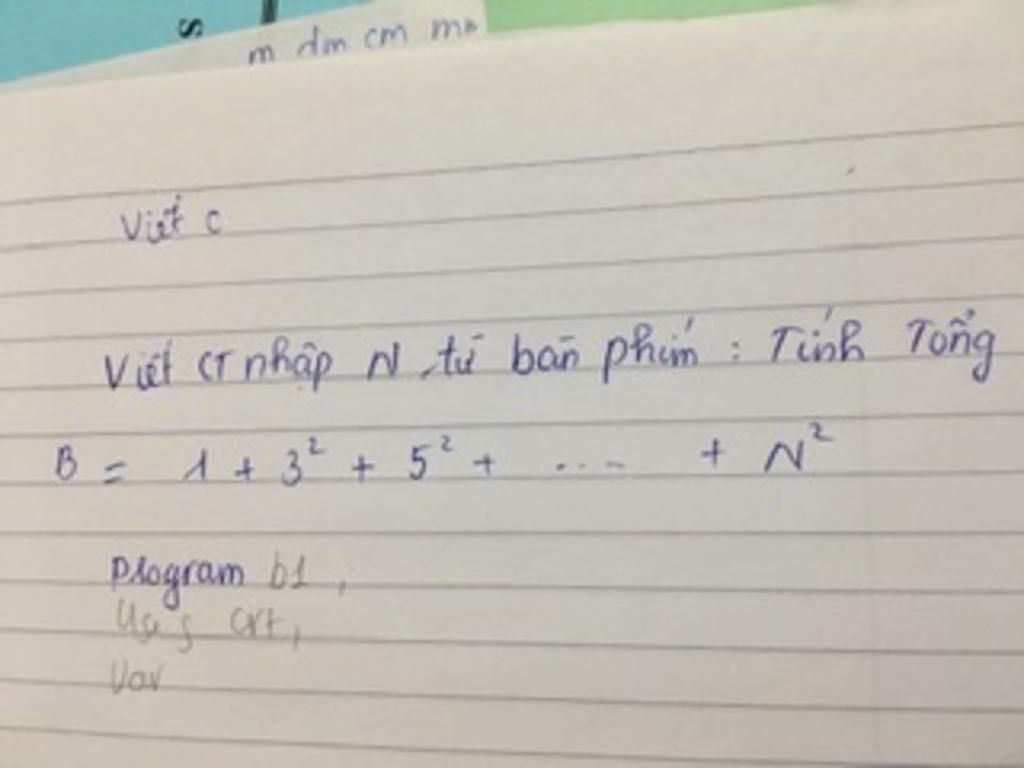 s
m dm cm mm
Viết c
Viết CT nhập N từ bàn phím : Tính Tổng
B = 1 + 3² + 5² + .... + N²
Program b1 ,
Uses crt,
Var